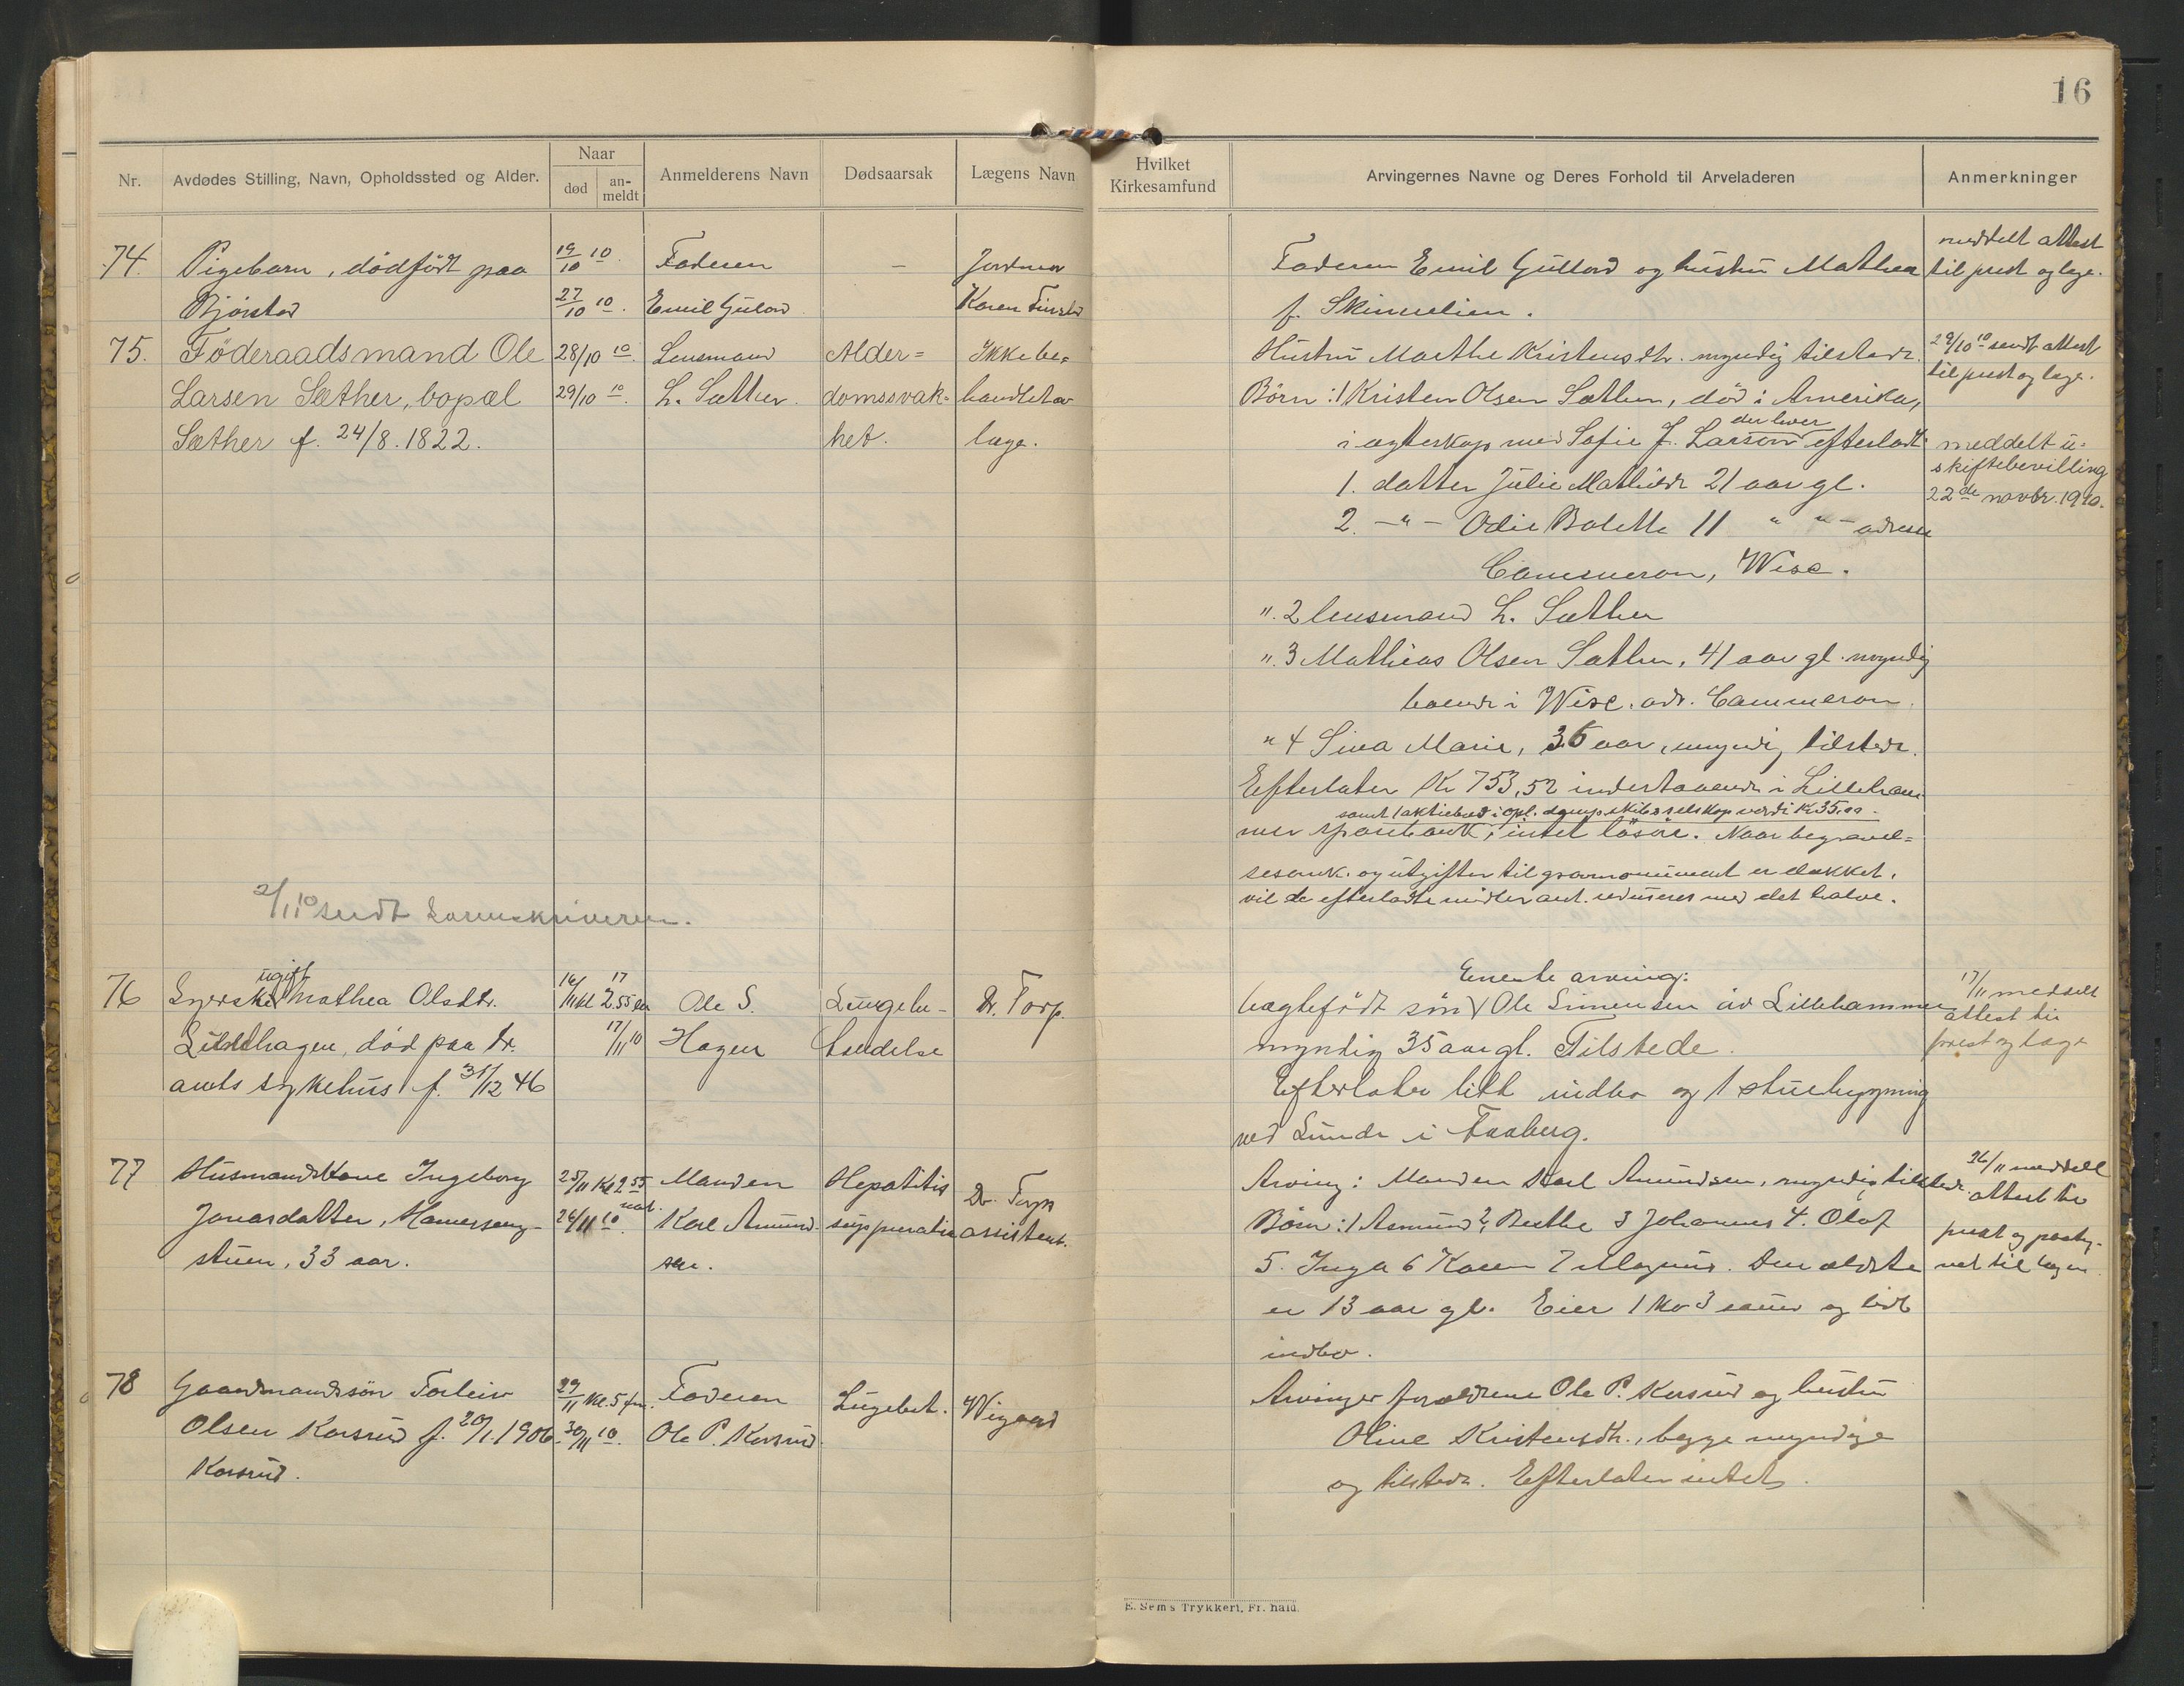 16
Nr.
Avdødes Stilling, Navn, Opholdssted og Alder.
Naar
død
an-
meldt
Anmelderens Navn
Dødsaarsak
Lægens Navn
Hvilket
Kirkesamfund
Arvingernes Navne og Deres Forhold til Arveladeren
Anmerkninger
74.
Pigebarn, dødfødt paa
Bjørstad
19/10 10.
27/10 10.
Faderen
Emil Gullord
—
Jordmor
Karen
Faderen Emil Gullord og hustru Mathea
f. Skinnelien.
meddelt attest
til prest og læge.
75.
Föderaadsmand Ole
Larsen Sæther, bopæl
Sæther f. 24/8. 1822.
28/10 10.
29/10 10.
Lensmand
L. Sæther.
Alder=
domssvak=
het.
Ikke be=
handlet av
læge.
Hustru Marthe Kristensdtr. myndig tilstede.
Børn: 1 Kristen Olsen Sæther, død i Amerika,
der lever
i ægteskap med Sofie J. Larson efterladt:
1. datter Julie Mathilde 21 aar gl.
2. —"— Odie Bolette 11 " " — adresse
Cammeron, Wisc.
". 2 lensmand L. Sæther
". 3 Mathias Olsen Sæther, 41 aar gl. myndig
boende i Wisc. adr. Cammeron.
" 4 Sina Marie, 36 aar, myndig tilstede.
Efterlater Kr 753,52 indestaaende i Lilleham-
samt 1 aktiebrev i Opl. dampskibsselskap verdi Kr 35,00
mer sparebank; intet løsøre. Naar begravel=
sesomk. og utgifter til gravmonument er dækket,
vil de efterladte midler ant. reduceres med det halve.
29/10 10 sendt attest
til prest og læge.
meddelt u-
skiftebevilling
22de novbr. 1910.
2/11 10 sendt Sorenskriveren.
76
ugift
Syerske Mathea Olsdtr.
Lillehagen, død paa Kr.
amts sykehus f. 31/12 46
16/11 kl 2.55
17
17/11 10
Ole S.
Hagen
Lungebe-
tændelse
Dr. Torp.
Eneste arving:
uægtefødt søn Ole Simensen av Lillehammer
myndig 35 aar gl. Tilstede.
Efterlater litt indbo og 1 stuebygning
ved Lunde i Faaberg.
17/11 meddelt
attest til
prest og læge
77
Husmandskone Ingeborg
Jonasdatter, Hamerseng-
stuen, 33 aar.
25/11 Kl 2 55
nat.
26/11 10.
Manden
Karl Amund-
sen.
Hepatitis
suppurativa
Dr. Torps
assistent.
Arving: Manden Karl Amundsen, myndig tilstede.
Børn: 1 Asmund 2, Berthe 3 Johannes 4. Olaf
5. Inga 6 Karen 7 Magnus. Den ældste
er 13 aar gl. Eier 1 ko 3 sauer og lidt
indbo.
26/11 meddelt
attest til
prest og
til lægen
78
Gaardmandssøn Torleiv
Olsen Korsrud f. 20/1. 1906
Korsrud.
29/11 Kl. 5 fm.
30/11 10.
Faderen
Ole P. Korsrud.
Lugebet.
Wigaard
Arvinger forældrene Ole P. Korsrud og hustru
Oline Kristensdtr., begge myndige
og tilstede. Efterlater intet.
E. Sem's Trykkeri, Fr. hald.